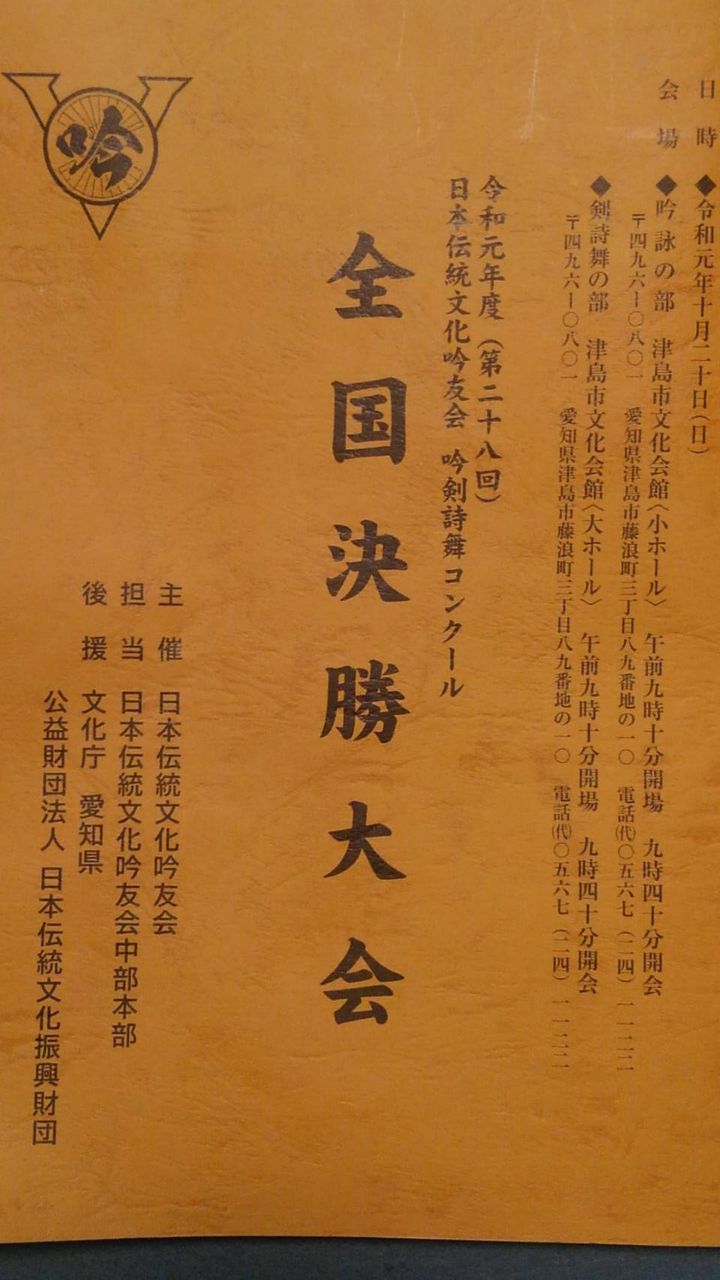 日時 ◆令和元年十月二十日(日)
会場 ◆吟詠の部 津島市文化会館〈小ホール〉 午前九時十分開場 九時四十分開会
〒四九六ー〇八〇一 愛知県津島市藤浪町三丁目八九番地の一〇 電話㈹〇五六七(二四)一一二二
◆剣詩舞の部 津島市文化会館〈大ホール〉 午前九時十分開場 九時四十分開会
〒四九六ー〇八〇一 愛知県津島市藤浪町三丁目八九番地の一〇 電話㈹〇五六七(二四)一一二二
令和元年度(第二十八回)
日本伝統文化吟友会 吟剣詩舞コンクール
全国決勝大会
主催 日本伝統文化吟友会
担当 日本伝統文化吟友会中部本部
後援 文化庁 愛知県
公益財団法人 日本伝統文化振興財団
吟